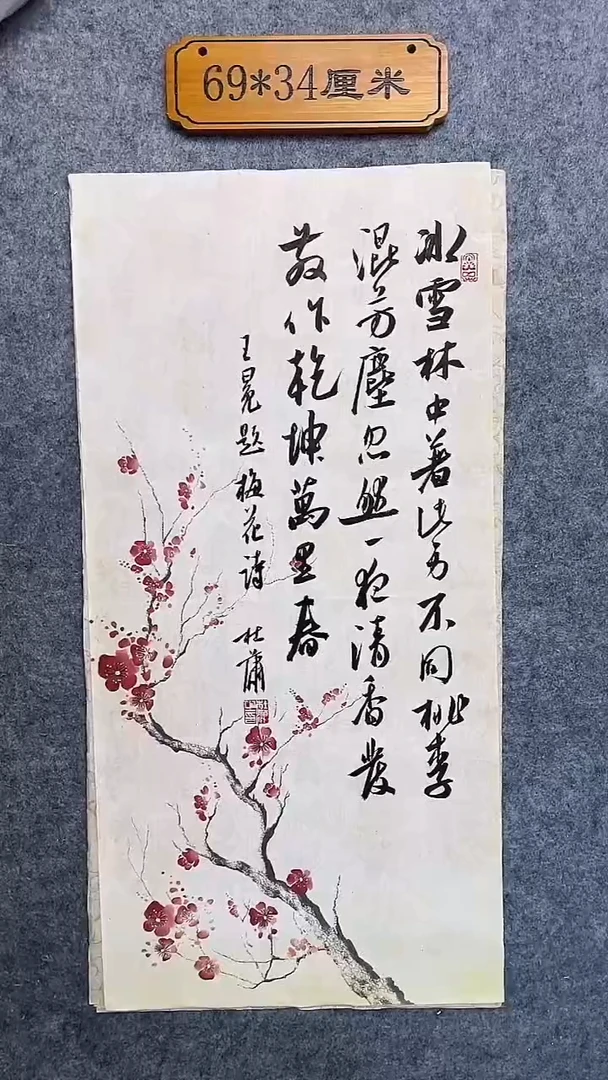 69*34厘米
冰雪林中著此身不同桃李
混芳塵忽然一夜清香發
散作乾坤萬里春
王冕題梅花詩 杜蕭